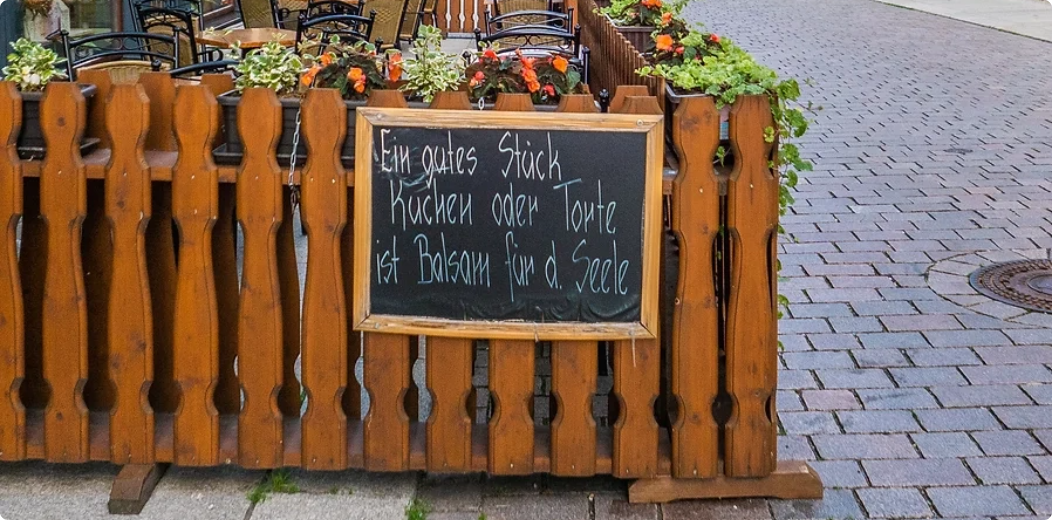 Ein gutes Stück
Kuchen oder Torte
ist Balsam für d. Seele